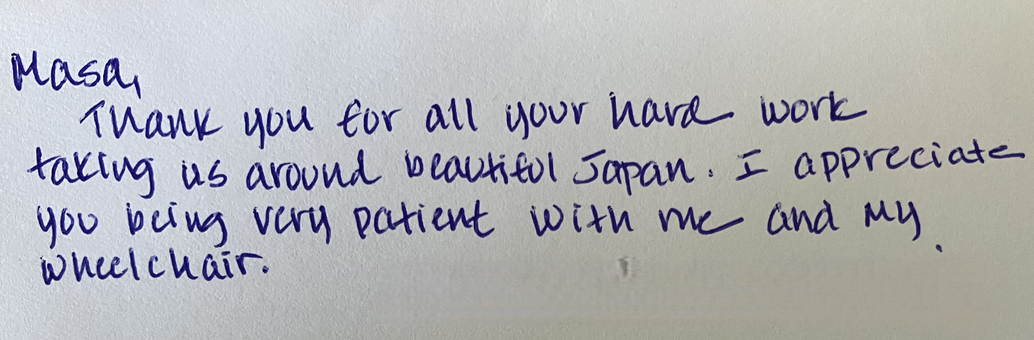 Masa,
Thank you for all your hard work
taking us around beautiful Japan. I appreciate
you being very patient with me and my
wheelchair.